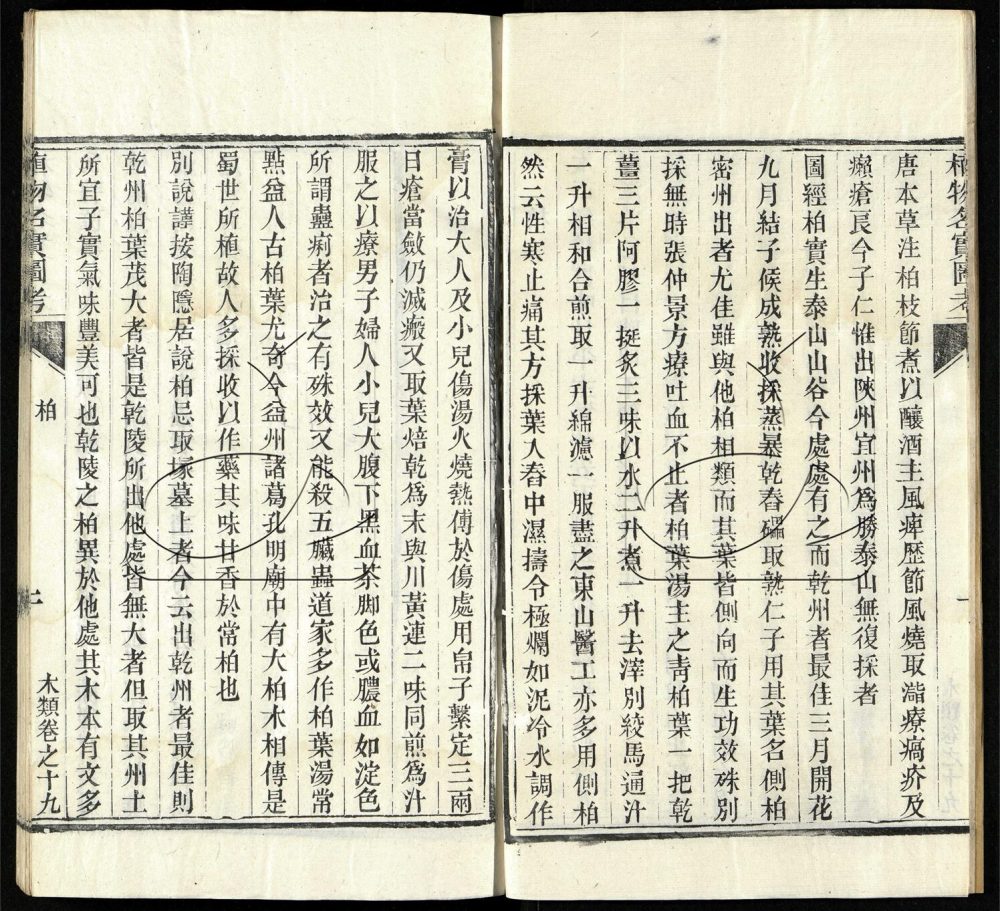 植物名實圖考
一
唐本草注柏枝節煮以釀酒主風痺歷節風燒取㵽療瘑疥及
癩瘡良今子仁惟出陝州宜州為勝泰山無復採者
圖經柏實生泰山山谷今處處有之而乾州者最佳三月開花
九月結子候成熟收採蒸暴乾舂礧取熟仁子用其葉名側柏
密州出者尤佳雖與他柏相類而其葉皆側向而生功效殊別
採無時張仲景方療吐血不止者柏葉湯主之靑柏葉一把乾
薑三片阿膠一挺炙三味以水二升煮一升去滓別絞馬通汁
一升相和合煎取一升綿濾一服盡之東山醫工亦多用側柏
然云性寒止痛其方採葉入舂中濕擣令極爛如泥冷水調作
膏以治大人及小兒傷湯火燒熱傅於傷處用帛子繫定三兩
日瘡當斂仍滅瘢又取葉焙乾為末與川黃連二味同煎為汁
服之以療男子婦人小兒大腹下黑血茶脚色或膿血如淀色
所謂蠱痢者治之有殊效又能殺五臟蟲道家多作柏葉湯常
點益人古柏葉尤奇今益州諸葛孔明廟中有大柏木相傳是
蜀世所植故人多採收以作藥其味甘香於常柏也
別說謹按陶隱居說柏忌取塚墓上者今云出乾州者最佳則
乾州柏葉茂大者皆是乾陵所出他處皆無大者但取其州土
所宜子實氣味豐美可也乾陵之柏異於他處其木本有文多
植物名實圖考
柏
二
木類卷之十九